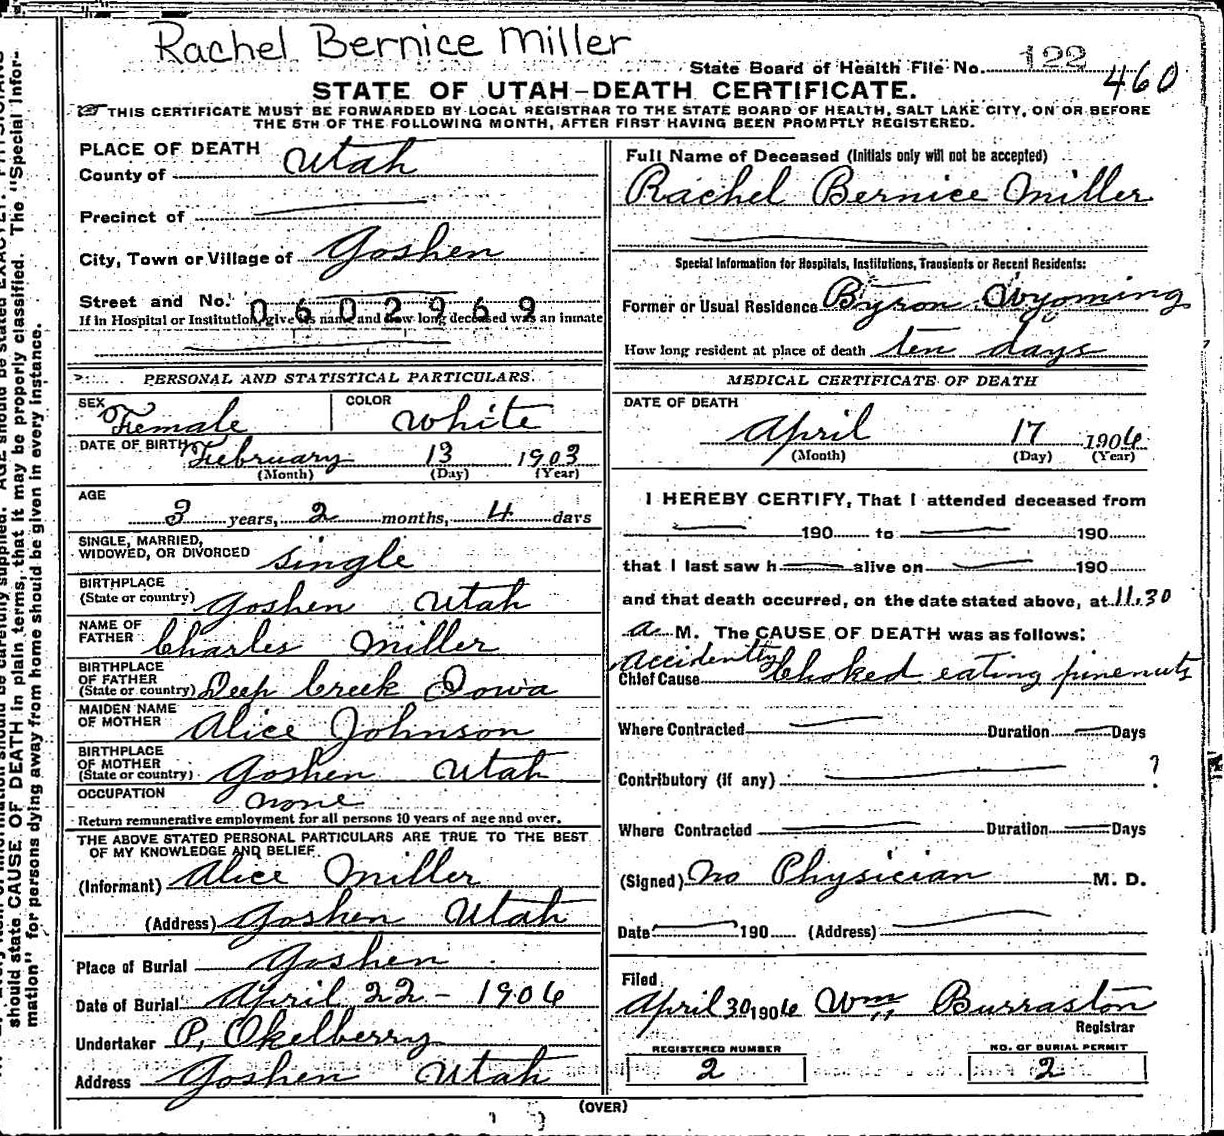 Rachel Bernice Miller
State Board of Health File No. 122
460
STATE OF UTAH-DEATH CERTIFICATE.
THIS CERTIFICATE MUST BE FORWARDED BY LOCAL REGISTRAR TO THE STATE BOARD OF HEALTH, SALT LAKE CITY, ON OR BEFORE
THE 5TH OF THE FOLLOWING MONTH, AFTER FIRST HAVING BEEN PROMPTLY REGISTERED.
PLACE OF DEATH
County of Utah
Precinct of
City, Town or Village of Goshen
Street and No.
0602969
If in Hospital or Institution, give its name and how long deceased was an inmate
PERSONAL AND STATISTICAL PARTICULARS.
SEX Female COLOR White
DATE OF BIRTH February 13 1903
(Month) (Day) (Year)
AGE
3 years, 2 months, 4 days
SINGLE, MARRIED,
WIDOWED, OR DIVORCED single
BIRTHPLACE
(State or country) Goshen Utah
NAME OF
FATHER Charles Miller
BIRTHPLACE
OF FATHER
(State or country) Deep Creek Iowa
MAIDEN NAME
OF MOTHER Alice Johnson
BIRTHPLACE
OF MOTHER
(State or country) Goshen Utah
OCCUPATION none
Return remunerative employment for all persons 10 years of age and over.
THE ABOVE STATED PERSONAL PARTICULARS ARE TRUE TO THE BEST
OF MY KNOWLEDGE AND BELIEF.
(Informant) Alice Miller
(Address) Goshen Utah
Place of Burial Goshen
Date of Burial April 22-1906
Undertaker P. Okelberry
Address Goshen Utah
Full Name of Deceased (Initials only will not be accepted)
Rachel Bernice Miller
Special Information for Hospitals, Institutions, Transients or Recent Residents:
Former or Usual Residence Byron Wyoming
How long resident at place of death ten days
MEDICAL CERTIFICATE OF DEATH
DATE OF DEATH
April 17 1906
(Month) (Day) (Year)
I HEREBY CERTIFY, That I attended deceased from
190 to 190
that I last saw h alive on 190
and that death occurred, on the date stated above, at 11.30
a M. The CAUSE OF DEATH was as follows:
Accidently
Chief Cause Choked eating pinenuts
Where Contracted Duration Days
Contributory (if any) ?
Where Contracted Duration Days
(Signed) No Physician M. D.
Date 190 (Address)
Filed
April 30 1906 Wm Burraston
Registrar
REGISTERED NUMBER
2
NO. OF BURIAL PERMIT
2
(OVER)
should state CAUSE OF DEATH in plain terms, that it may be properly classified. The "Special Infor-
mation" for persons dying away from home should be given in every instance.